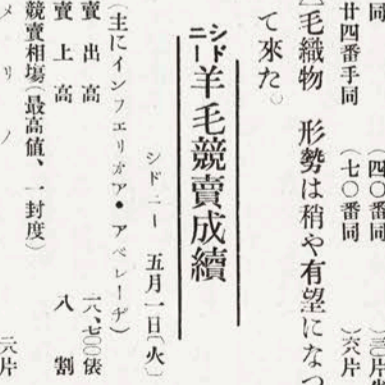 同 (四〇番同 )三〇片
廿四番手同 (七〇番同 )六片
毛織物 形勢は稍や有望になつ
て來た。
シドニー羊毛競賣成績
シドニー 五月一日(火)
(主にインフエリオア・アベレーヂ)
賣出高 一八、七〇〇俵
賣上高 八割
競賣相場(最高値、一封度)
メリノ 二六片